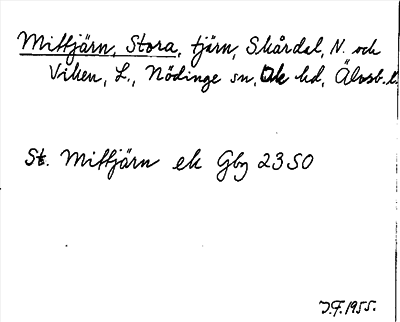 Mittjärn, Stora, tjärn, Skårdal, N. och
Viken, L., Nödinge sn, Ale hd, Älvsb. l.
St. Mittjärn ek Gbg 23 SO
J.F. 1955.